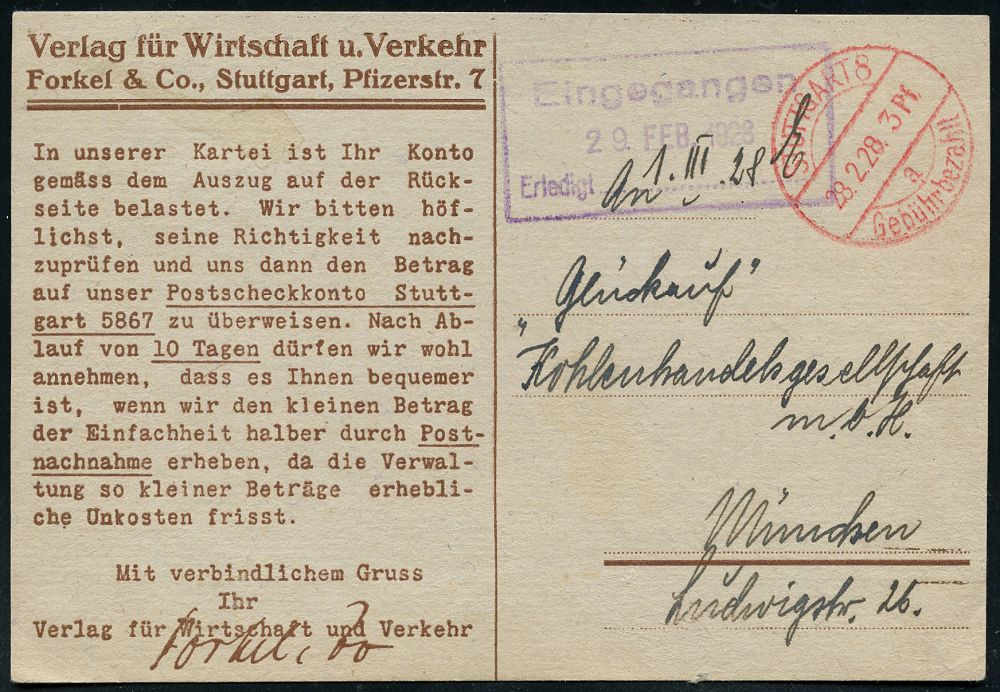 Verlag für Wirtschaft u. Verkehr
Forkel & Co., Stuttgart, Pfizerstr. 7
In unserer Kartei ist Ihr Konto
gemäss dem Auszug auf der Rück-
seite belastet. Wir bitten höf-
lichst, seine Richtigkeit nach-
zuprüfen und uns dann den Betrag
auf unser Postscheckkonto Stutt-
gart 5867 zu überweisen. Nach Ab-
lauf von 10 Tagen dürfen wir wohl
annehmen, dass es Ihnen bequemer
ist, wenn wir den kleinen Betrag
der Einfachheit halber durch Post-
nachnahme erheben, da die Verwal-
tung so kleiner Beträge erhebli-
che Unkosten frisst.
Mit verbindlichem Gruss
Ihr
Verlag für Wirtschaft und Verkehr
Forkel & Co
Eingegangen
29. FEB. 1928
Erledigt
1. III. 28
STUTTGART 8
28.2.28. 3 Pf.
a
Gebühr bezahlt
Glückauf"
"Kohlenhandelsgesellschaft
m.b.H.
München
Ludwigstr. 26.